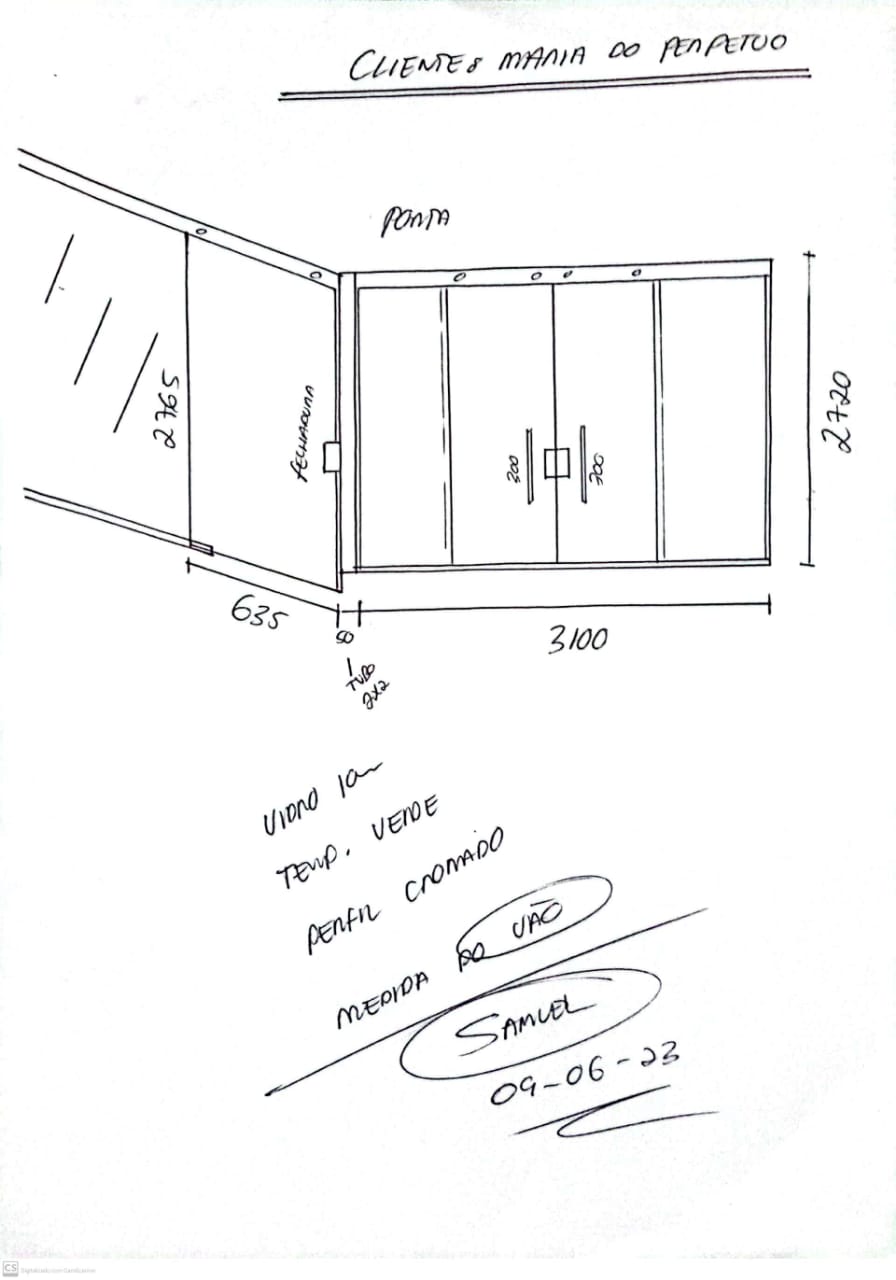 CLIENTE: MARIA DO PERPETUO
PORTA
2765
FECHADURA
300
300
2720
635
50
3100
TUBO
2X2
VIDRO 10
TEMP. VERDE
PERFIL CROMADO
MEDIDA DO VÃO
SAMUEL
09-06-23
CS Digitalizado com CamScanner